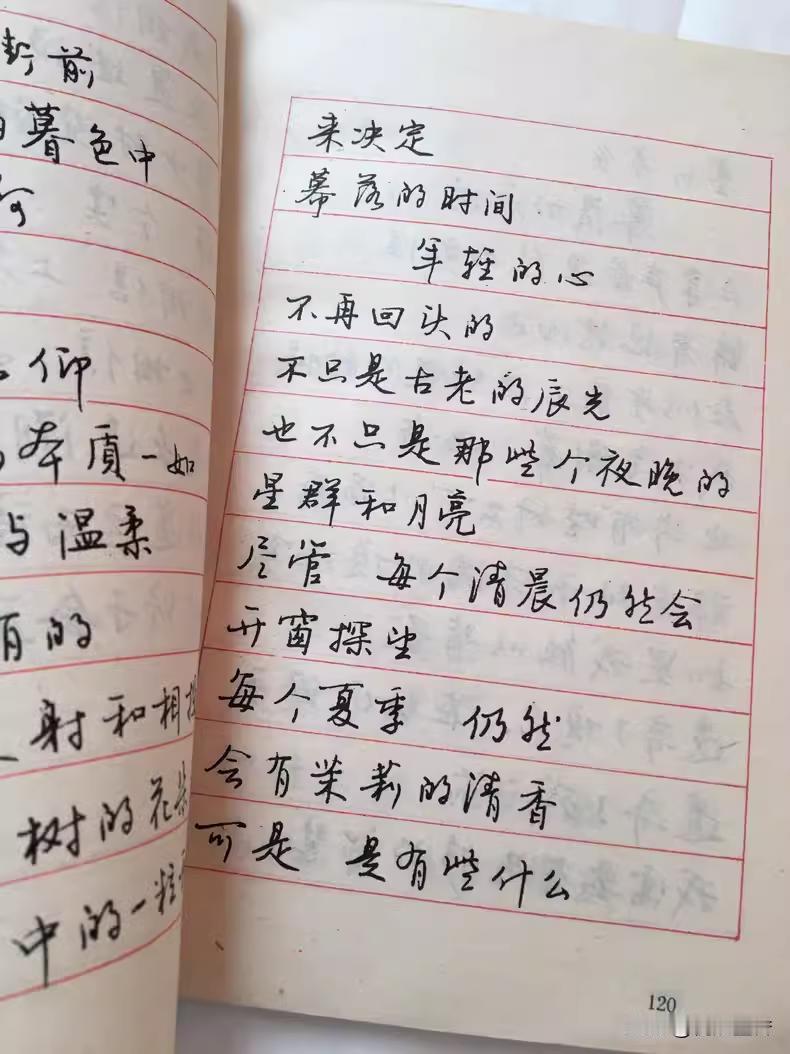 前
暮色中
仰
本质一如
与温柔
有的
射和相
树的花
中的一粒
来决定
幕落的时间
年轻的心
不再回头的
不只是古老的辰光
也不只是那些个夜晚的
星群和月亮
尽管 每个清晨仍然会
开窗探望
每个夏季 仍然
会有茉莉的清香
可是 是有些什么
120